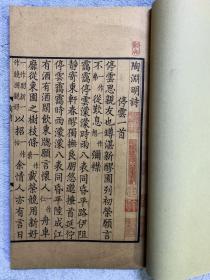 陶淵明詩
停雲一首
停雲思親友也罇湛新醪園列初榮願言
不從歎息彌襟
靄靄停雲濛濛時雨八表同昏平路伊阻
靜寄東軒春醪獨撫良朋悠邈搔首延佇
停雲靄靄時雨濛濛八表同昏平陸成江
有酒有酒閑飲東牕願言懷人舟車
靡從東園之樹枝條載榮競用新好
以招余情人亦有言日